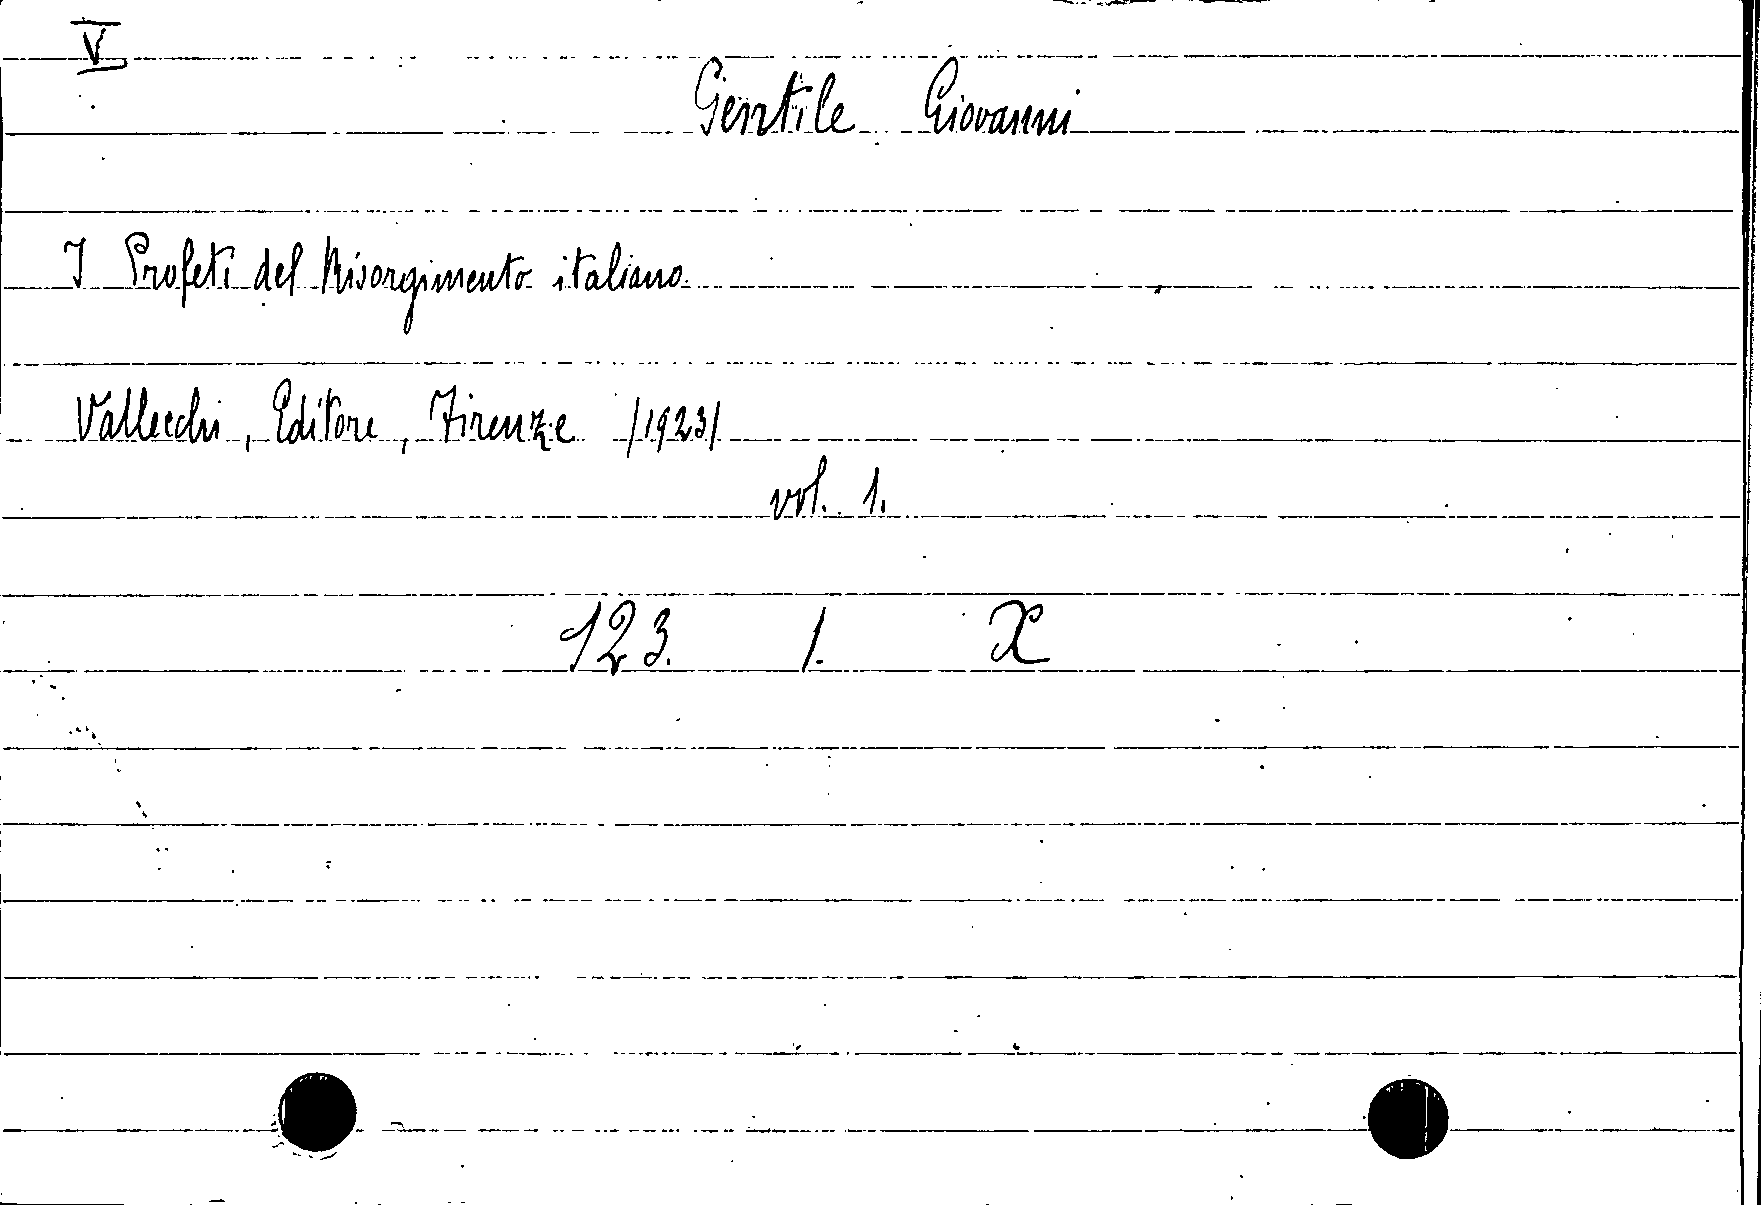 V
Gentile Giovanni
I Profeti del Risorgimento italiano.
Vallecchi, Editore, Firenze /1923/
vol. 1.
123. 1. X